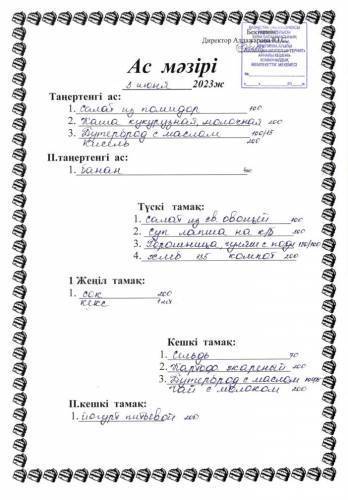 Бекітемін
Директор
Ас мәзірі
3 июня 2023ж
Таңертенгі ас:
1. Салат из помидор 100
2. Каша кукурузная, молочная 200
3. Бутерброд с маслом 100/15
Кисель 200
II.таңертенгі ас:
1. банан
Түскі тамақ:
1. салат из св. овощей 100
2. суп лапша на к/б 200
3. с подл 150/100
4. хлеб 135 компот 200
1 Жеңіл тамақ:
1. сок 200
кекс 1 шт
Кешкі тамақ:
1. сельдь 70
2. Картоф жареный 200
3. Бутерброд с маслом
Чай с молоком 200
II.кешкі тамақ:
1. йогурт питьевой 200